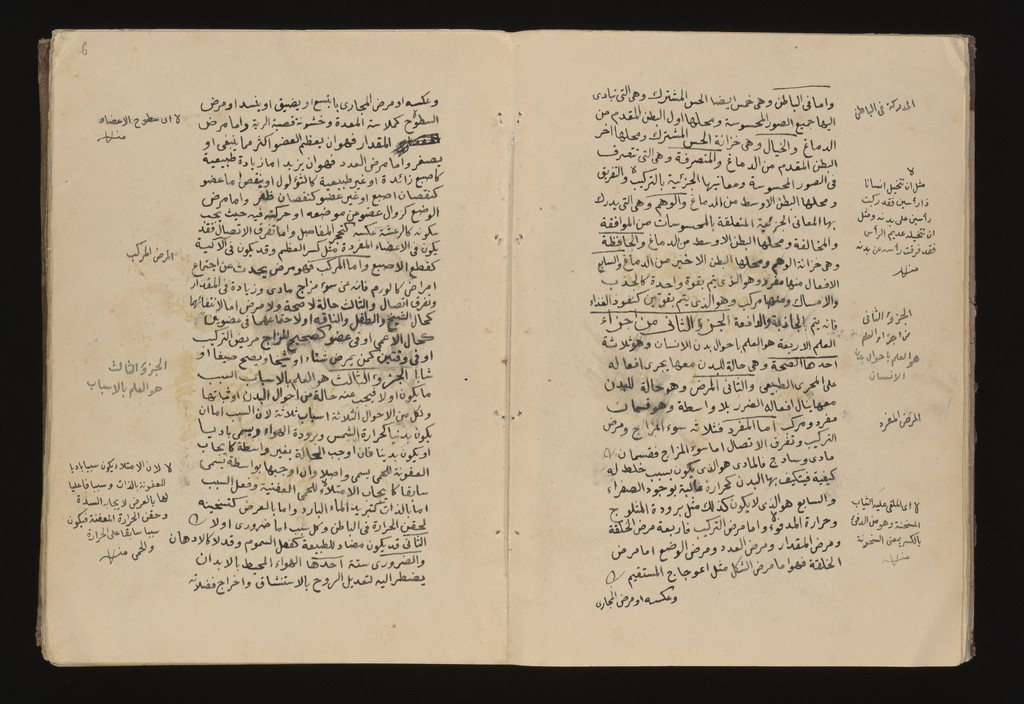 واما فى الباطن وهى خمس ايضا الحس المشترك وهى التى تتادى
اليها جميع الصور المحسوسة ومحلها اول البطن المقدم من
الدماغ والخيال وهى خزانة الحس المشترك ومحلها اخر
البطن المقدم من الدماغ والمتصرفة وهى التى تتصرف
فى الصور المحسوسة ومعانيها الجزئية بالتركيب والتفريق
ومحلها البطن الاوسط من الدماغ والوهم وهى التى يدرك
بها المعانى الجزئية المتعلقة بالمحسوسات من الموافقة
والمخالفة ومحلها البطن الاوسط من الدماغ والحافظة
وهى خزانة الوهم ومحلها البطن الاخير من الدماغ والسابع
الافعال منها مفرد وهو الذى يتم بقوة واحدة كالجذب
والامساك ومنها مركب وهو الذى يتم بقوتين كنفوذ الغذاء
فانه يتم بالجاذبة والدافعة الجزء الثانى من اجزاء
العلم الاربعة هو العلم باحوال بدن الانسان وهو ثلاثة
احدها الصحة وهى حالة للبدن معها يجرى افعاله
على المجرى الطبيعى والثانى المرض وهو حالة للبدن
معها ينال افعاله الضرر بلا واسطة وهو قسمان
مفرد ومركب اما المفرد فثلاثة سوء المزاج ومرض
التركيب وتفرق الاتصال اما سوء المزاج فقسمان
مادى وساذج فالمادى هو الذى يكون بسبب خلط له
كيفية فيتكيف بها البدن كحرارة غالبة بوجود الصفراء
والساذج هو الذى لا يكون كذلك مثل برودة المثلوج
وحرارة المدفوء واما مرض التركيب فاربعة مرض الخلقة
ومرض المقدار ومرض العدد ومرض الوضع اما مرض
الخلقة فهو اما مرض الشكل مثل اعوجاج المستقيم
وعكسه او مرض المجارى
المدركة فى الباطن
مثل ان تتخيل انسانا
ذا راسين فقد ركبت
راسين على بدنه ومثل
ان تتخيله عديم الرأس
فقد فرقت رأسه عن بدنه
الجزء الثانى
من اجزاء العلم
هو العلم باحوال بدن
الانسان
المرض المفرد
لا اى الملقى عليه الثياب
وعكسه او مرض المجارى بان يتسع او يضيق او ينسد او مرض
السطوح كملاسة المعدة وخشونة قصبة الرية واما مرض
المقدار فهو ان يعظم العضو اكثر مما ينبغى او
يصغر واما مرض العدد فهو ان يزيد اما زيادة طبيعية
كاصبع زائدة او غير طبيعية كالثؤلول او ينقص اما عضو
كنقصان اصبع او غير عضو كنقصان ظفر واما مرض
الوضع كزوال عضو من موضعه او حركته فيه حيث يجب
سكونه كالرعشة عكسه كتحجر المفاصل واما تفرق الاتصال فقد
يكون فى الاعضاء المفردة مثل كسر العظم وقد يكون فى الآلية
كقطع الاصبع واما المركب فهو مرض يحدث عن اجتماع
امراض كالورم فانه من سوء مزاج مادى وزيادة فى المقدار
وتفرق اتصال والثالث حالة لا صحة ولا مرض اما لانتفائهما
كحال الشيخ والطفل والناقه او لاجتماعهما فى عضوين
كحال الاعمى او فى عضو كصحيح المزاج مريض التركيب
او فى وقتين كمن يمرض شتاء او شيخا ويصح صيفا او
شابا الجزء الثالث هو العلم بالاسباب السبب
ما يكون اولا فيجب عنه حالة من احوال البدن او ثباتها
ولكل من الاحوال الثلاثة اسباب ثلاثة لان السبب اما ان
يكون بدنيا كحرارة الشمس وبرودة الهواء ويسمى باديا
او يكون بدنيا فان اوجب الحالة بغير واسطة كايجاب
العفونة للحمى يسمى واصلا وان اوجبها بواسطة يسمى
سابقا كايجاب الامتلاء للحمى العفنية وفعل السبب
اما بالذات كتبريد الماء البارد واما بالعرض كتسخينه
لحقن الحرارة فى الباطن وكل سبب اما ضرورى اولا
الثانى قد يكون مضاد للطبيعة كفعل السموم وقد لا كالادهان
والضرورى ستة احدها الهواء المحيط بالابدان
يضطر اليه لتعديل الروح بالاستنشاق واخراج فضلاته
6
لا اى سطوح الاعضاء
المرض المركب
الجزء الثالث
هو العلم بالاسباب
لا لان الامتلاء يكون سببا باديا
للعفونة بالذات وسببا فاعليا
لها بالعرض لايجابه السدة
وحقن الحرارة المعفنة فيكون
سببا سابقا على الحرارة
والحمى